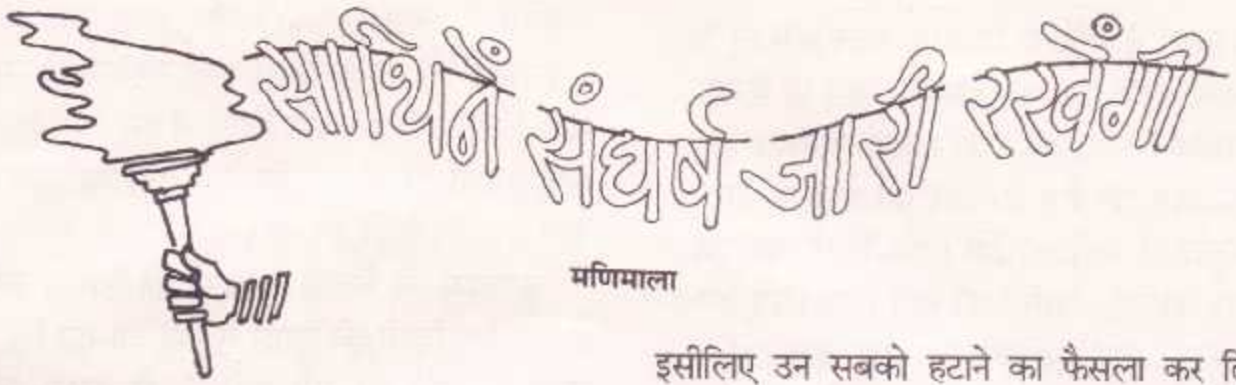 साथिनें संघर्ष जारी रखेंगी
मणिमाला
इसीलिए उन सबको हटाने का फैसला कर